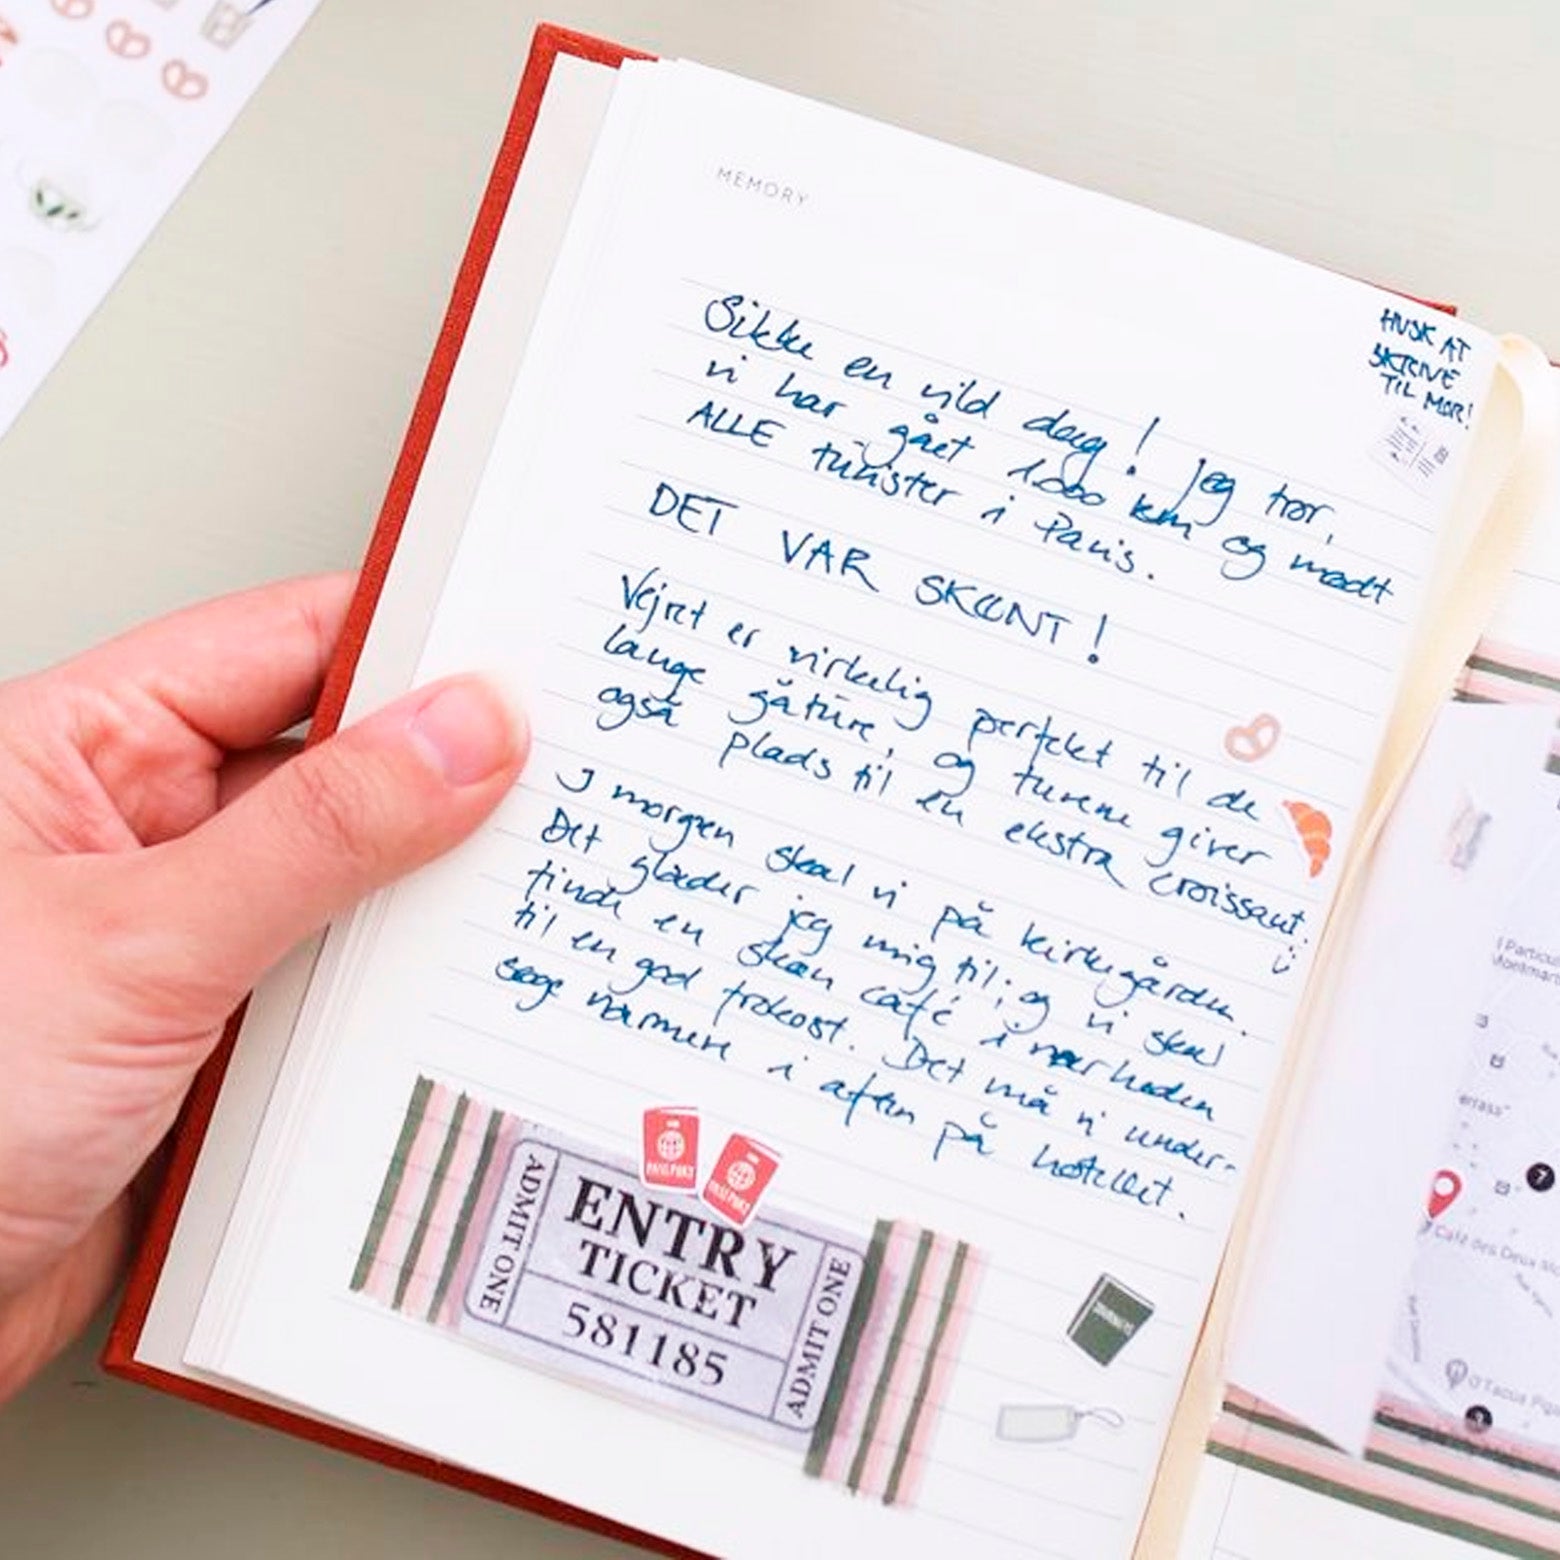 MEMORY
HUSK AT
SKRIVE
TIL MOR!
Sikke en vild dag! Jeg tror,
vi har gået 1.000 km og mødt
ALLE turister i Paris.
DET VAR SKØNT!
Vejret er virkelig perfekt til de
lange gåture, og turene giver
også plads til en ekstra croissant.
I morgen skal vi på kirkegården.
Det glæder jeg mig til, og vi skal
finde en skøn café i nærheden
til en god frokost. Det må vi under-
søge nærmere i aften på hotellet.
PASSPORT
PASSPORT
ADMIT ONE
ENTRY
TICKET
581185
ADMIT ONE
Particul
Montmar
errass"
7
Café des Deux Mo
O'Tacos Piga
3